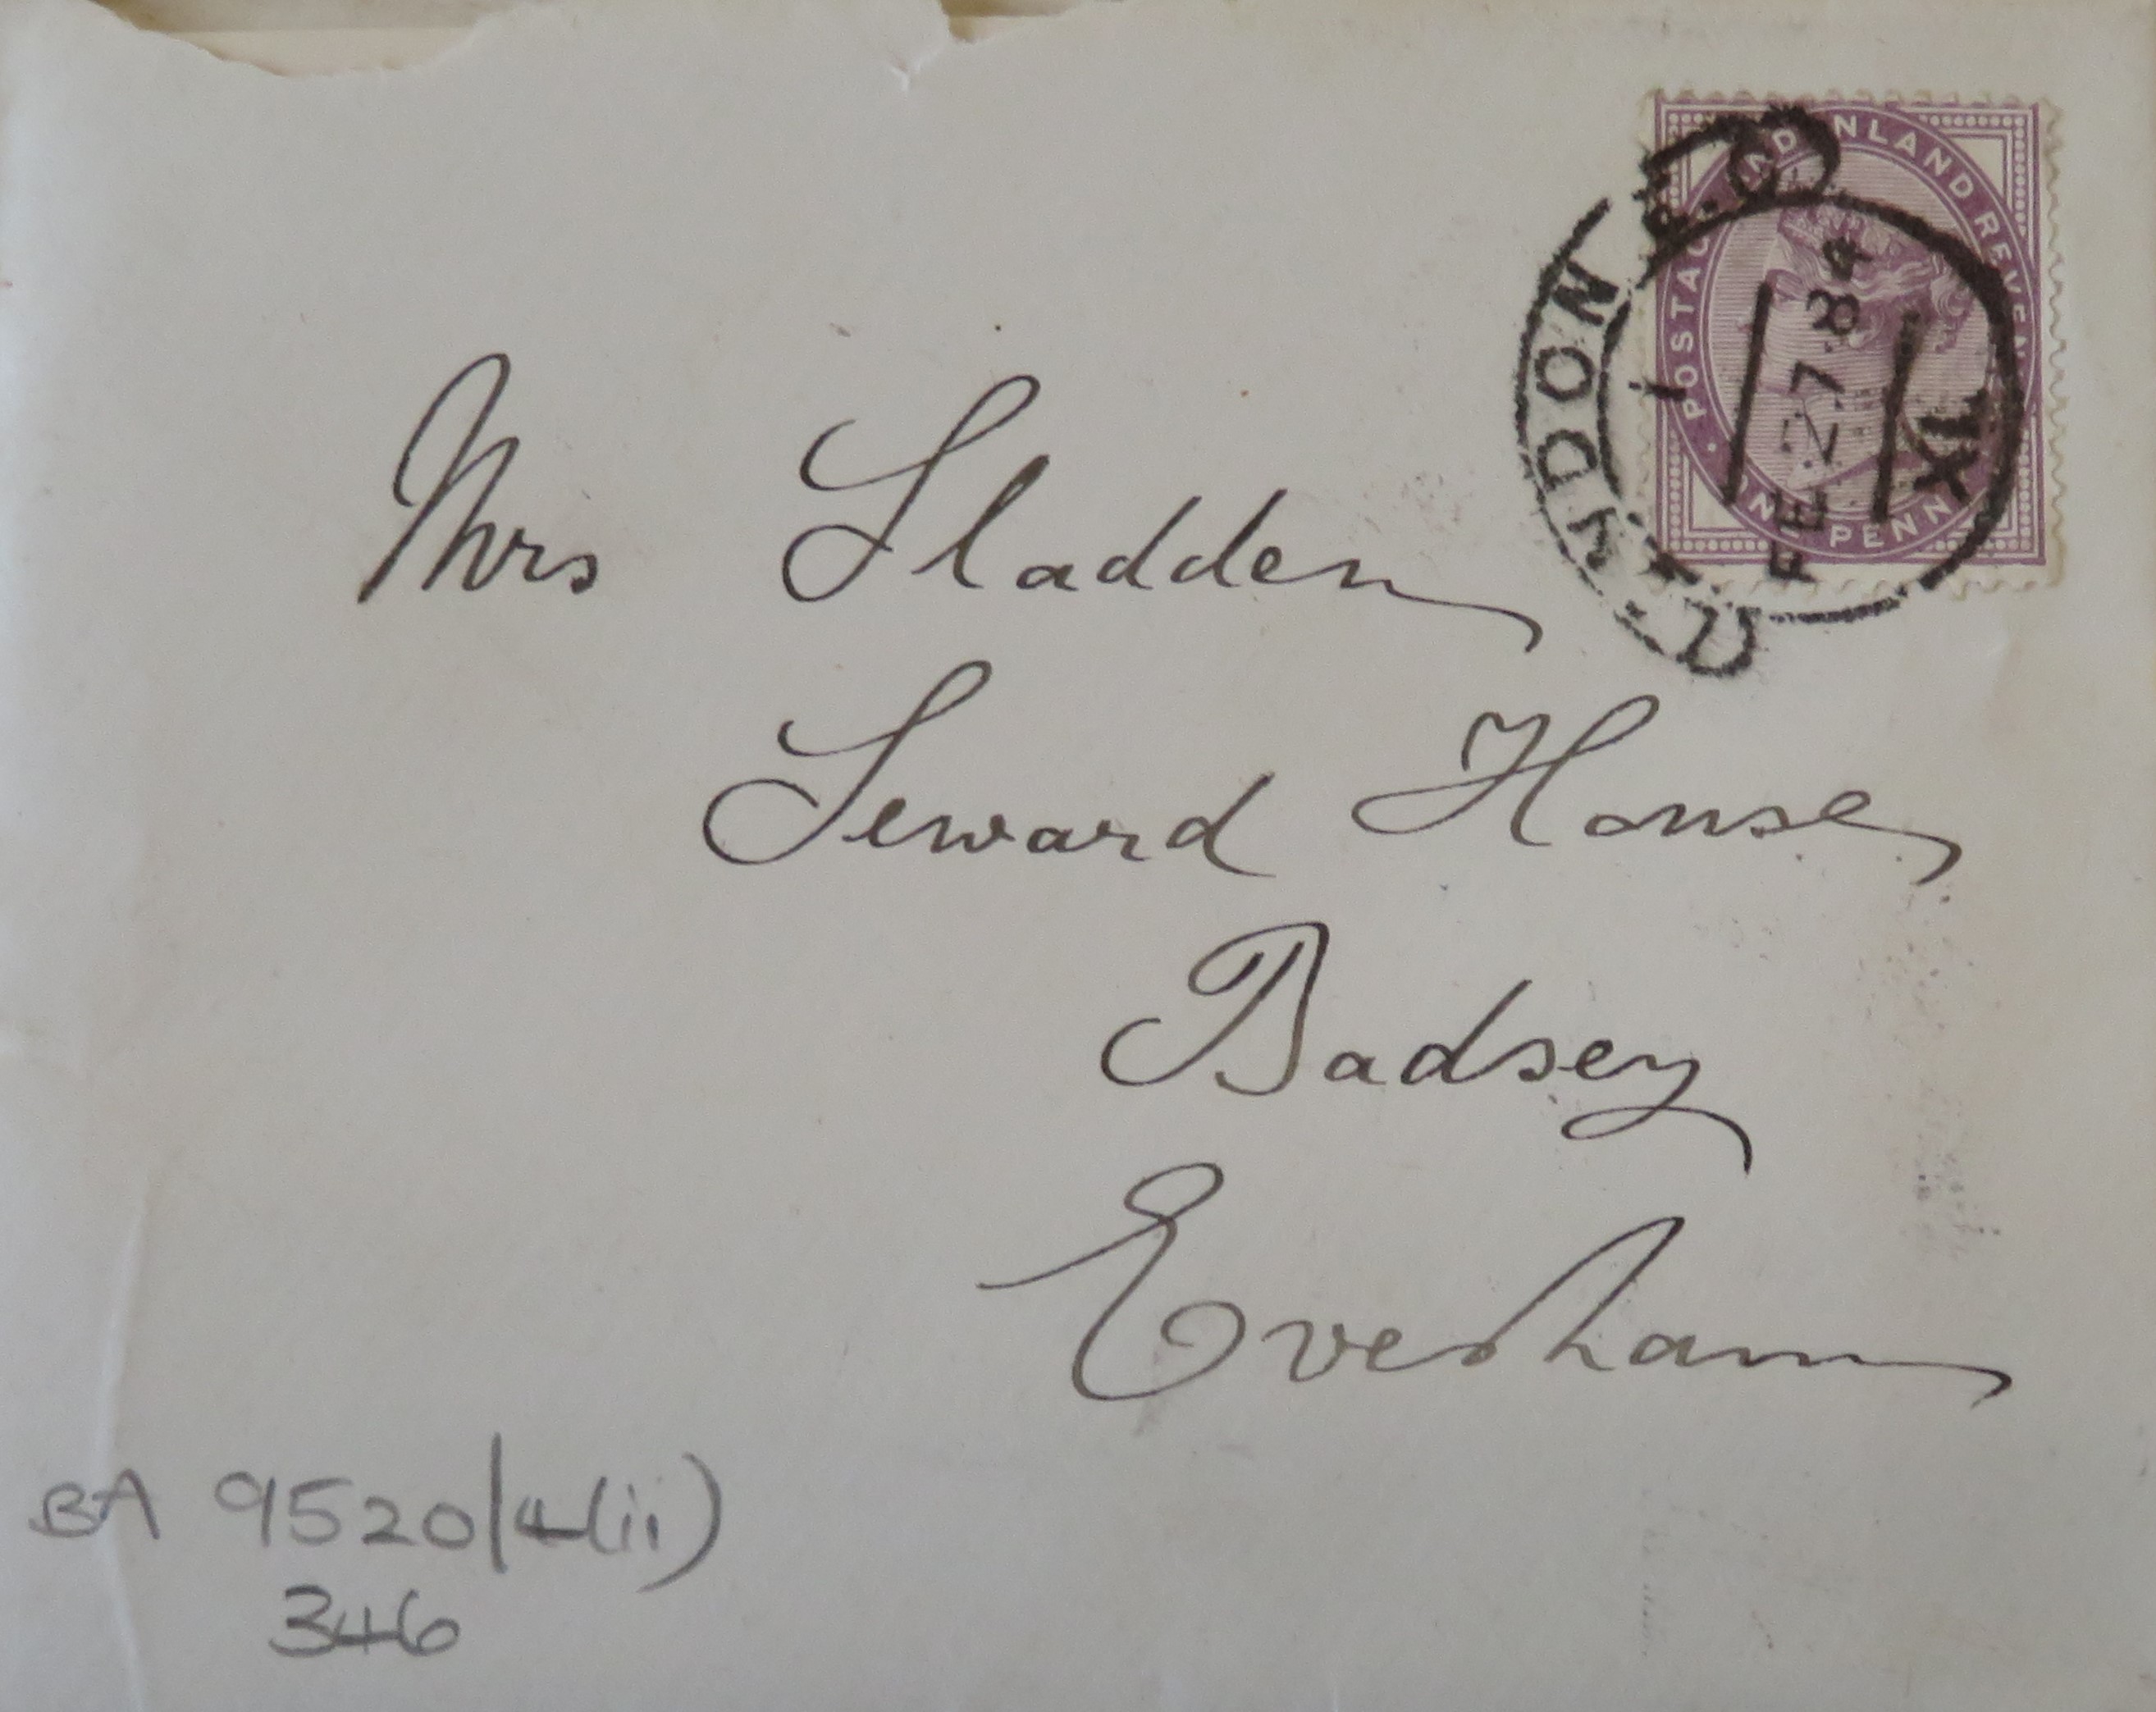 POSTAGE AND INLAND REVENUE
ONE PENNY
LONDON E.C
1
FE 27.84
XL
Mrs Sladden
Seward House
Badsey
Evesham
BA 9520/4(ii)
346